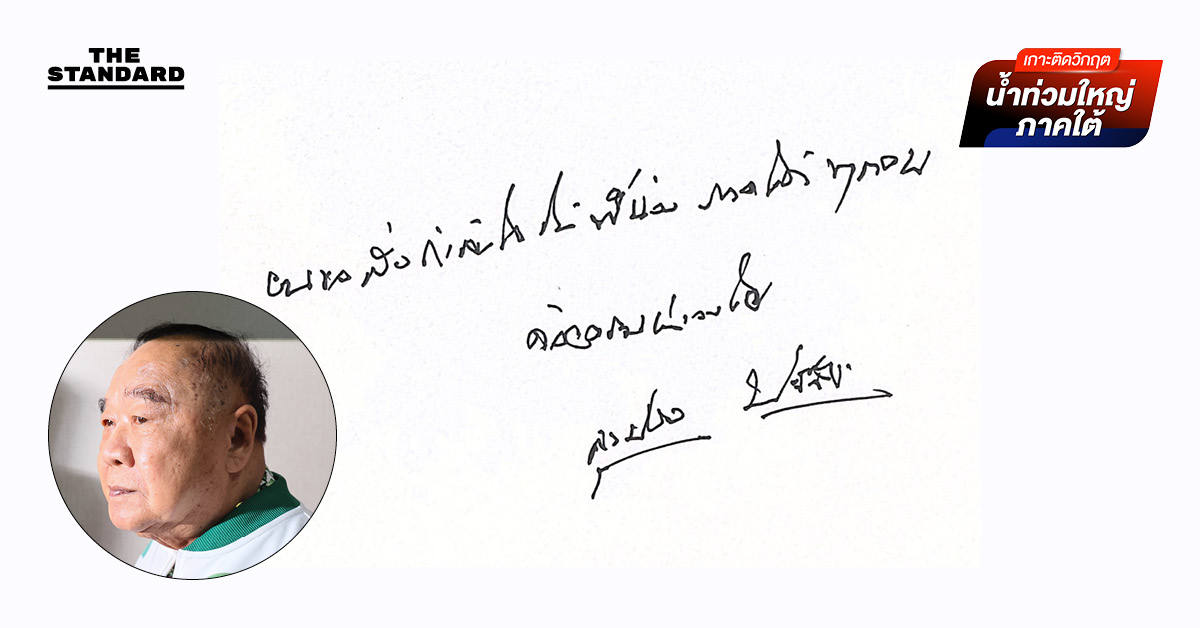 THE
STANDARD
เกาะติดวิกฤต
น้ำท่วมใหญ่
ภาคใต้
ผมขอส่งกำลังใจให้พี่น้อง ภาคใต้ ทุกคน
ด้วยความห่วงใย